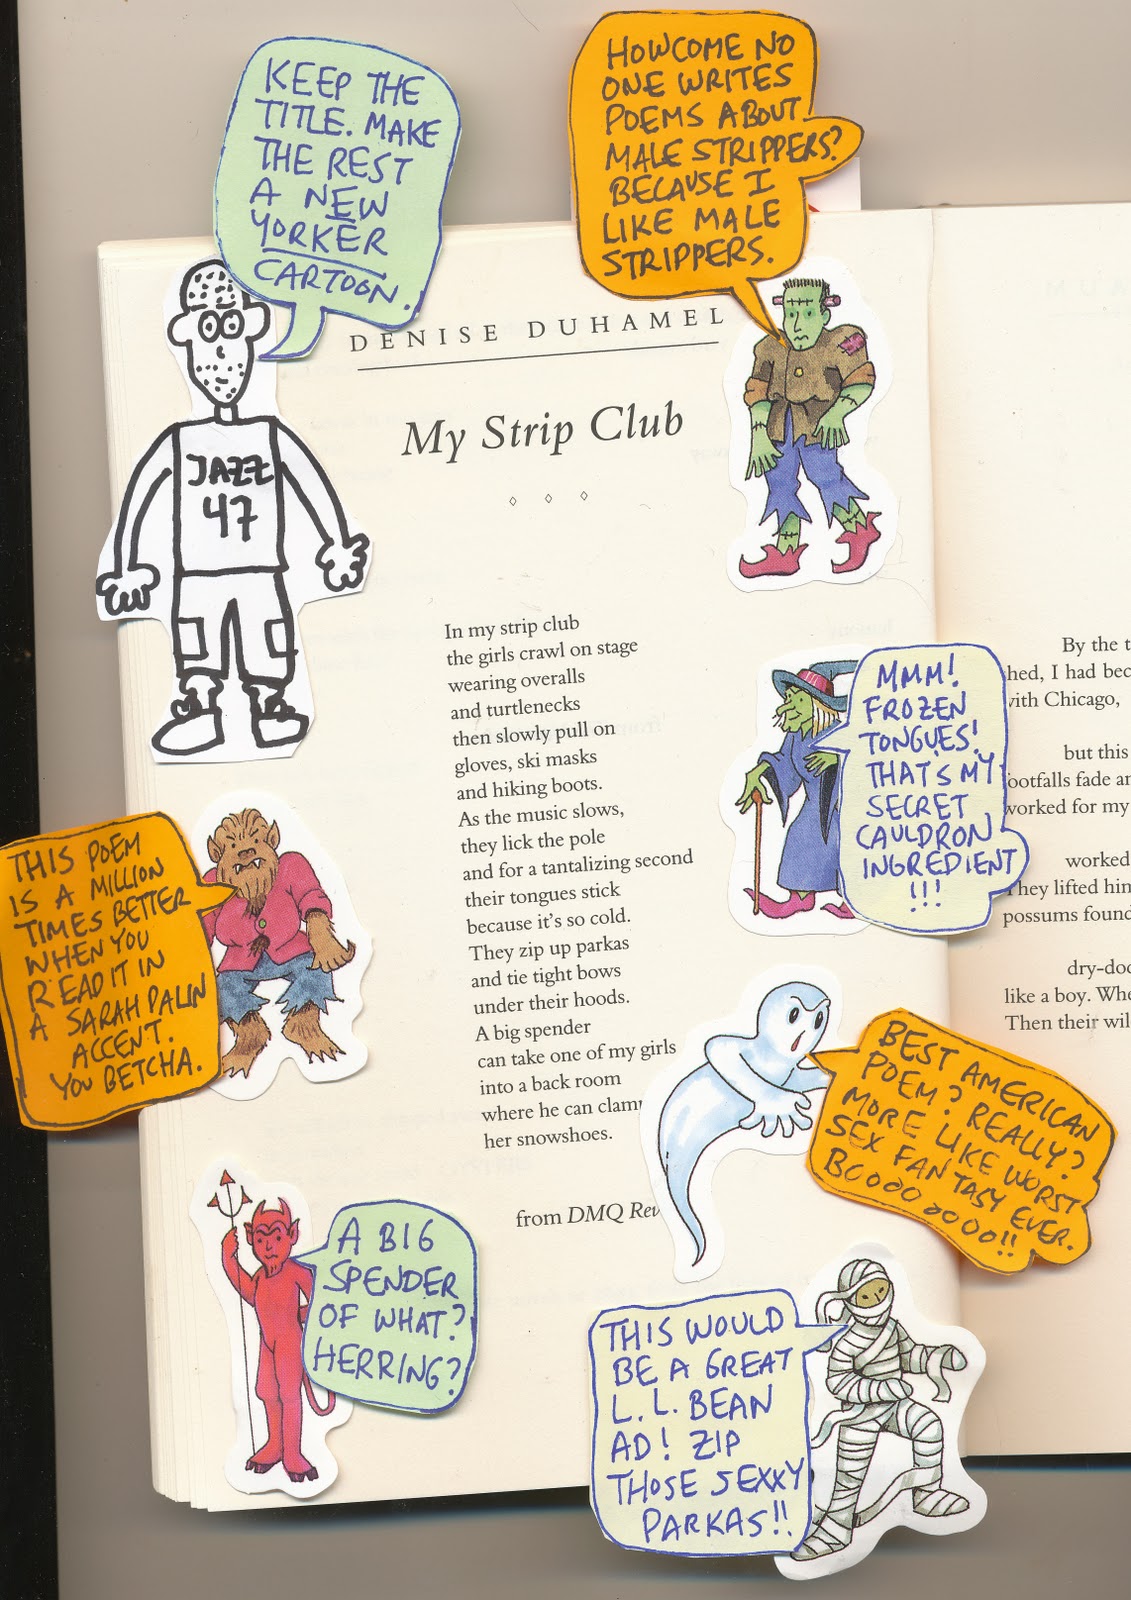 KEEP THE
TITLE. MAKE
THE REST
A NEW
YORKER
CARTOON.
HOWCOME NO
ONE WRITES
POEMS ABOUT
MALE STRIPPERS?
BECAUSE I
LIKE MALE
STRIPPERS.
DENISE DUHAMEL
My Strip Club
JAZZ
47
In my strip club
the girls crawl on stage
wearing overalls
and turtlenecks
then slowly pull on
gloves, ski masks
and hiking boots.
As the music slows,
they lick the pole
and for a tantalizing second
their tongues stick
because it's so cold.
They zip up parkas
and tie tight bows
under their hoods.
A big spender
can take one of my girls
into a back room
where he can clam
her snowshoes.
from DMQ Rev
MMM!
FROZEN
TONGUES!
THAT'S MY
SECRET
CAULDRON
INGREDIENT
!!!
THIS POEM
IS A MILLION
TIMES BETTER
WHEN YOU
READ IT IN
A SARAH PALIN
ACCENT.
YOU BETCHA.
BEST AMERICAN
POEM? REALLY?
MORE LIKE WORST
SEX FANTASY EVER.
BOOOO OOOOO!!
A BIG
SPENDER
OF WHAT?
HERRING?
THIS WOULD
BE A GREAT
L.L. BEAN
AD! ZIP
THOSE SEXXY
PARKAS!!
By the t
hed, I had bec
with Chicago,
but this
footfalls fade a
worked for my
worked
They lifted him
possums found
dry-doc
like a boy. Whe
Then their wil